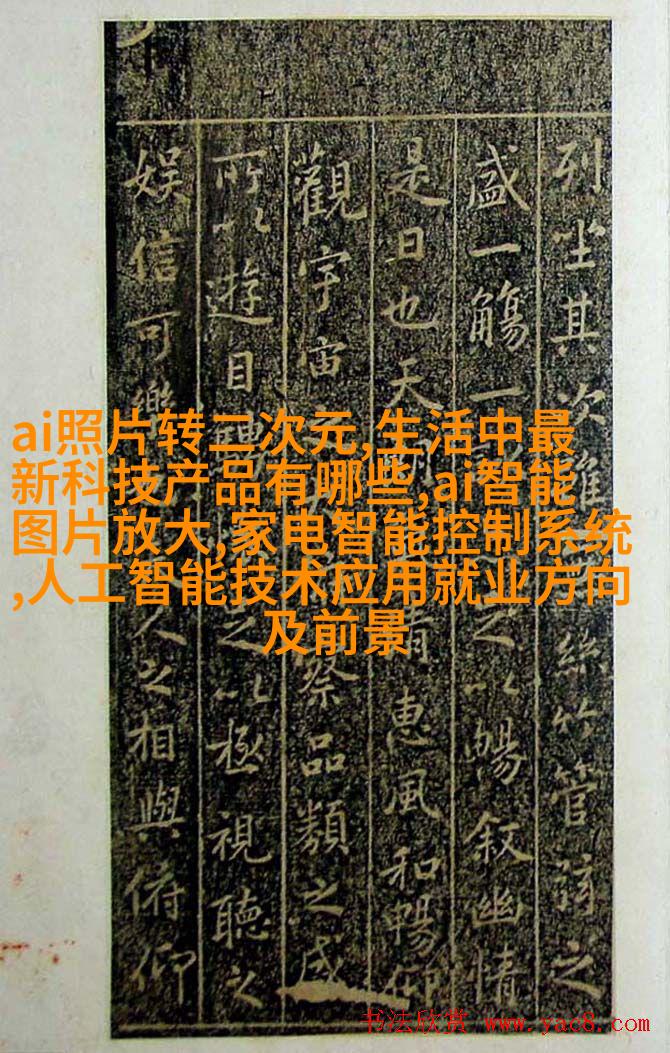 列坐其次雖絲竹管弦之
盛一觴一以暢叙幽情
是日也天清惠風和暢仰
觀宇宙察品類之盛
所以遊目騁之以極視聽之
娱信可樂人之相與俯仰
ai照片转二次元,生活中最
新科技产品有哪些,ai智能
图片放大,家电智能控制系统
,人工智能技术应用就业方向
及前景
书法欣赏 www.yac8.com